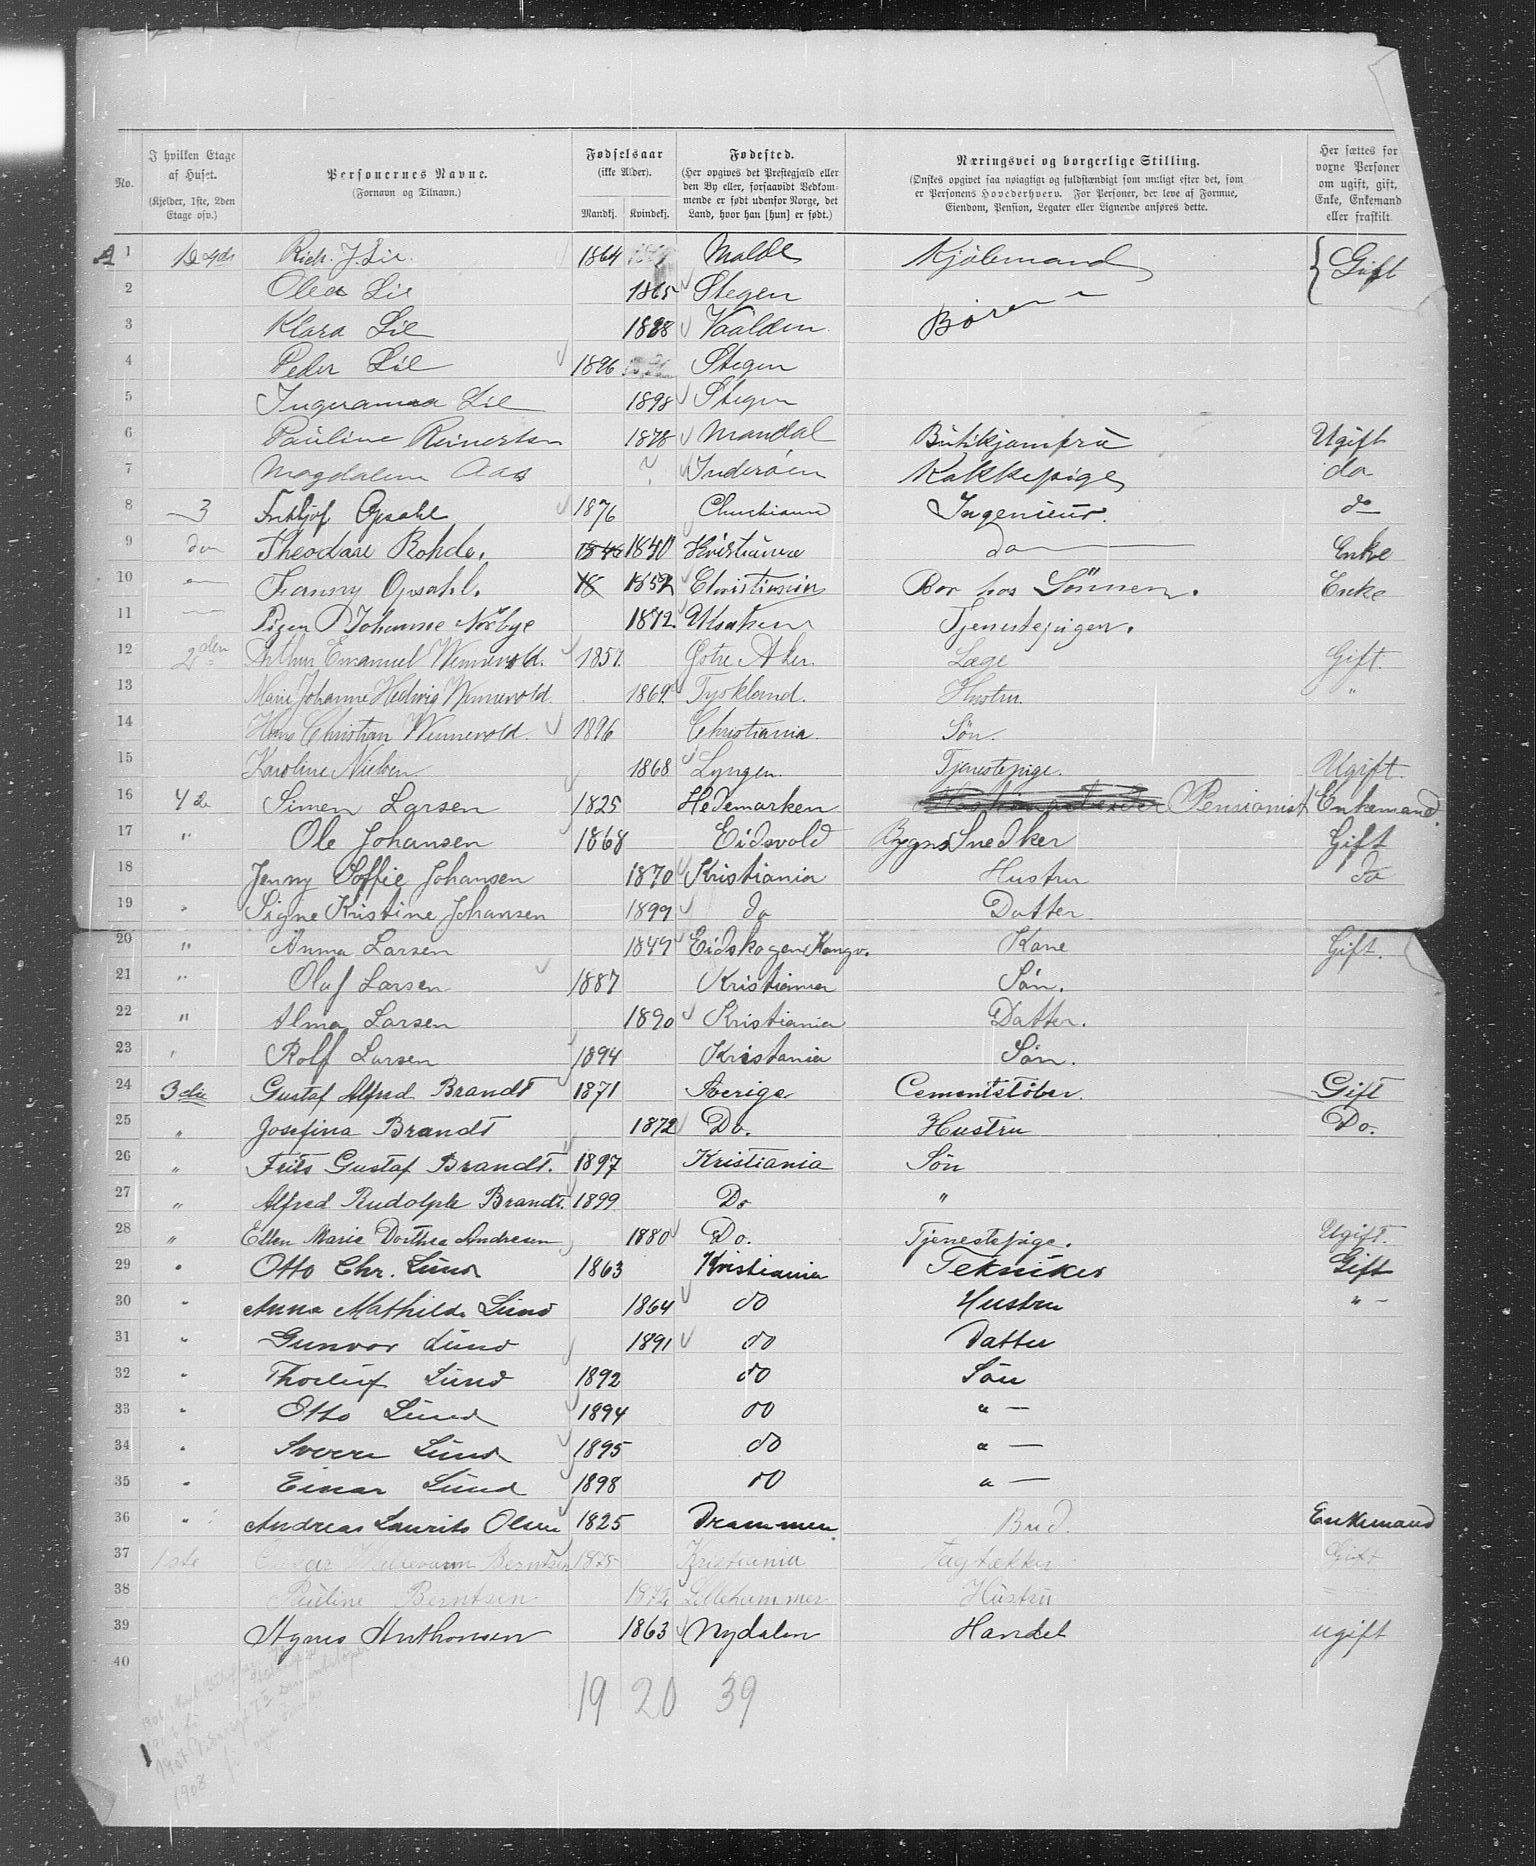 No. I hvilken Etage af Huset. (Kjelder, 1ste, 2den Etage osv.) Personernes Navne. (Fornavn og Tilnavn.) Fødselsaar (ikke Alder). Mandkj. Kvindekj. Fødested. (Her opgives det Prestegjæld eller den By eller, forsaavidt Vedkommende er født udenfor Norge, det Land, hvor han [hun] er født.) Næringsvei og borgerlige Stilling. (Ønskes opgivet saa nøiagtigt og fuldstændigt som muligt efter det, som er Personens Hovederhverv. For Personer, der leve af Formue, Eiendom, Pension, Legater eller Lignende anføres dette. Her sættes for voxne Personer om ugift, gift, Enke, Enkemand eller fraskilt.
1 Rich. J. Lie 1864 Molde Kjøbmand Gift
2 Olea Lie 1865 Stegen
3 Klara Lie 1888 Børn
4 Peder Lie 1896 Stegen
5 Lie 1898 Stegen
6 Pauline Reinertsen 1878 Mandal Butikjomfru Ugift
7 Magdalena Aas ? Inderøen Kokkepige do
8 3 Frithjof Opsahl 1876 Christiania Ingenieur. do
9 do Theodore Rohde. 1840 Kristiania do Enke
10 Fanny Opsahl. 1852 Christiania Bor hos Sönnen. Enke
11 Pigen Johanne Nörbye 1872 Tjenestepigen.
12 2den Arthur Emanuel Wennevold. 1857. Østre Aker. Læge Gift
13 Marie Johanne Hedvig Wennevold. 1869 Tyskland. Hustru. "
14 Hans Christian Wennevold. 1896 Christiania Søn.
15 Karoline Nielsen 1868 Lyngen. Tjenestepige. Ugift.
16 4de Simen Larsen 1825 Hedemarken Pensionist Enkemand.
17 " Ole Johansen 1868 Eidsvold Bygns Snedker Gift
18 Jenny Soffie Johansen 1870 Kristiania Hustru Do
19 " Signe Kristine Johansen 1899 do Datter.
20 " Anna Larsen 1849 Eidskogen Kongv. Kone Gift.
21 " Olaf Larsen 1887 Kristiania Søn.
22 " Alma Larsen 1890 Kristiania Datter.
23 " Rolf Larsen 1894 Kristania Søn.
24 3die Gustaf Alfred Brandt 1871 Sverige Cementstöber. Gift
25 " Josefina Brandt 1872 Do. Hustru Do.
26 " Frits Gustaf Brandt. 1897 Kristiania Sön
27 " Alfred Rudolph Brandt. 1899 Do "
28 " Ellen Marie Dorthea Andresen 1880 Do. Tjenestepige. Ugift.
29 " Otto Chr. Lund 1863 Kristiania Tekniker Gift
30 " Anna Mathilde Lund 1864 do Hustru " -
31 " Gunvor Lund 1891 do Datter
32 " Thorleif Lund 1892 do Sön
33 " Otto Lund 1894 do " —
34 " Sverre Lund 1895 do " —
35 " Einar Lund 1898 do " —
36 " Andreas Laurits Olsen 1825 Drammen Bud. Enkemand
37 1ste Berntsen 1875 Kristiania Tagtækker Gift
38 Pauline Berntsen 1872 Lillehammer Hustru
39 Agnes Anthonsen 1863 Nydalen Handel ugift
40
19 20 39
1908